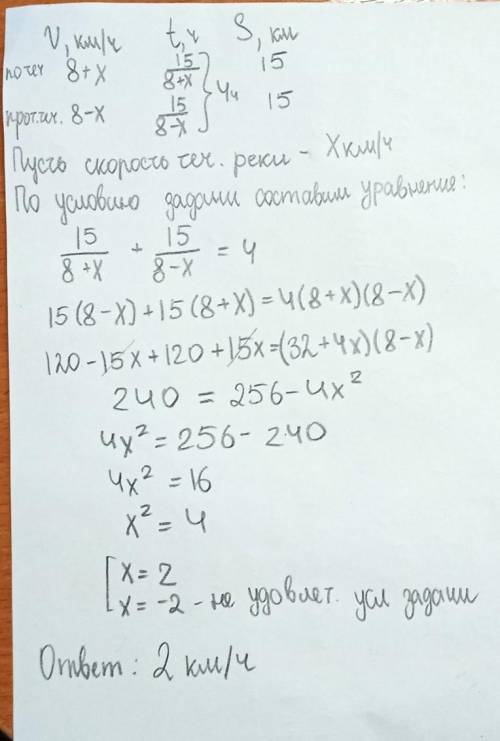 V, км/ч t, ч S, км
по теч 8+x 15/(8+x) 15
прот.теч. 8-x 15/(8-x) 4ч 15
Пусть скорость теч. реки - X км/ч
По условию задачи составим уравнение:
15/(8+x) + 15/(8-x) = 4
15(8-x)+15(8+x)=4(8+x)(8-x)
120-15x+120+15x=(32+4x)(8-x)
240 = 256-4x²
4x² = 256-240
4x² = 16
x² = 4
[x=2
x=-2 - не удовлет. усл задачи
Ответ: 2 км/ч